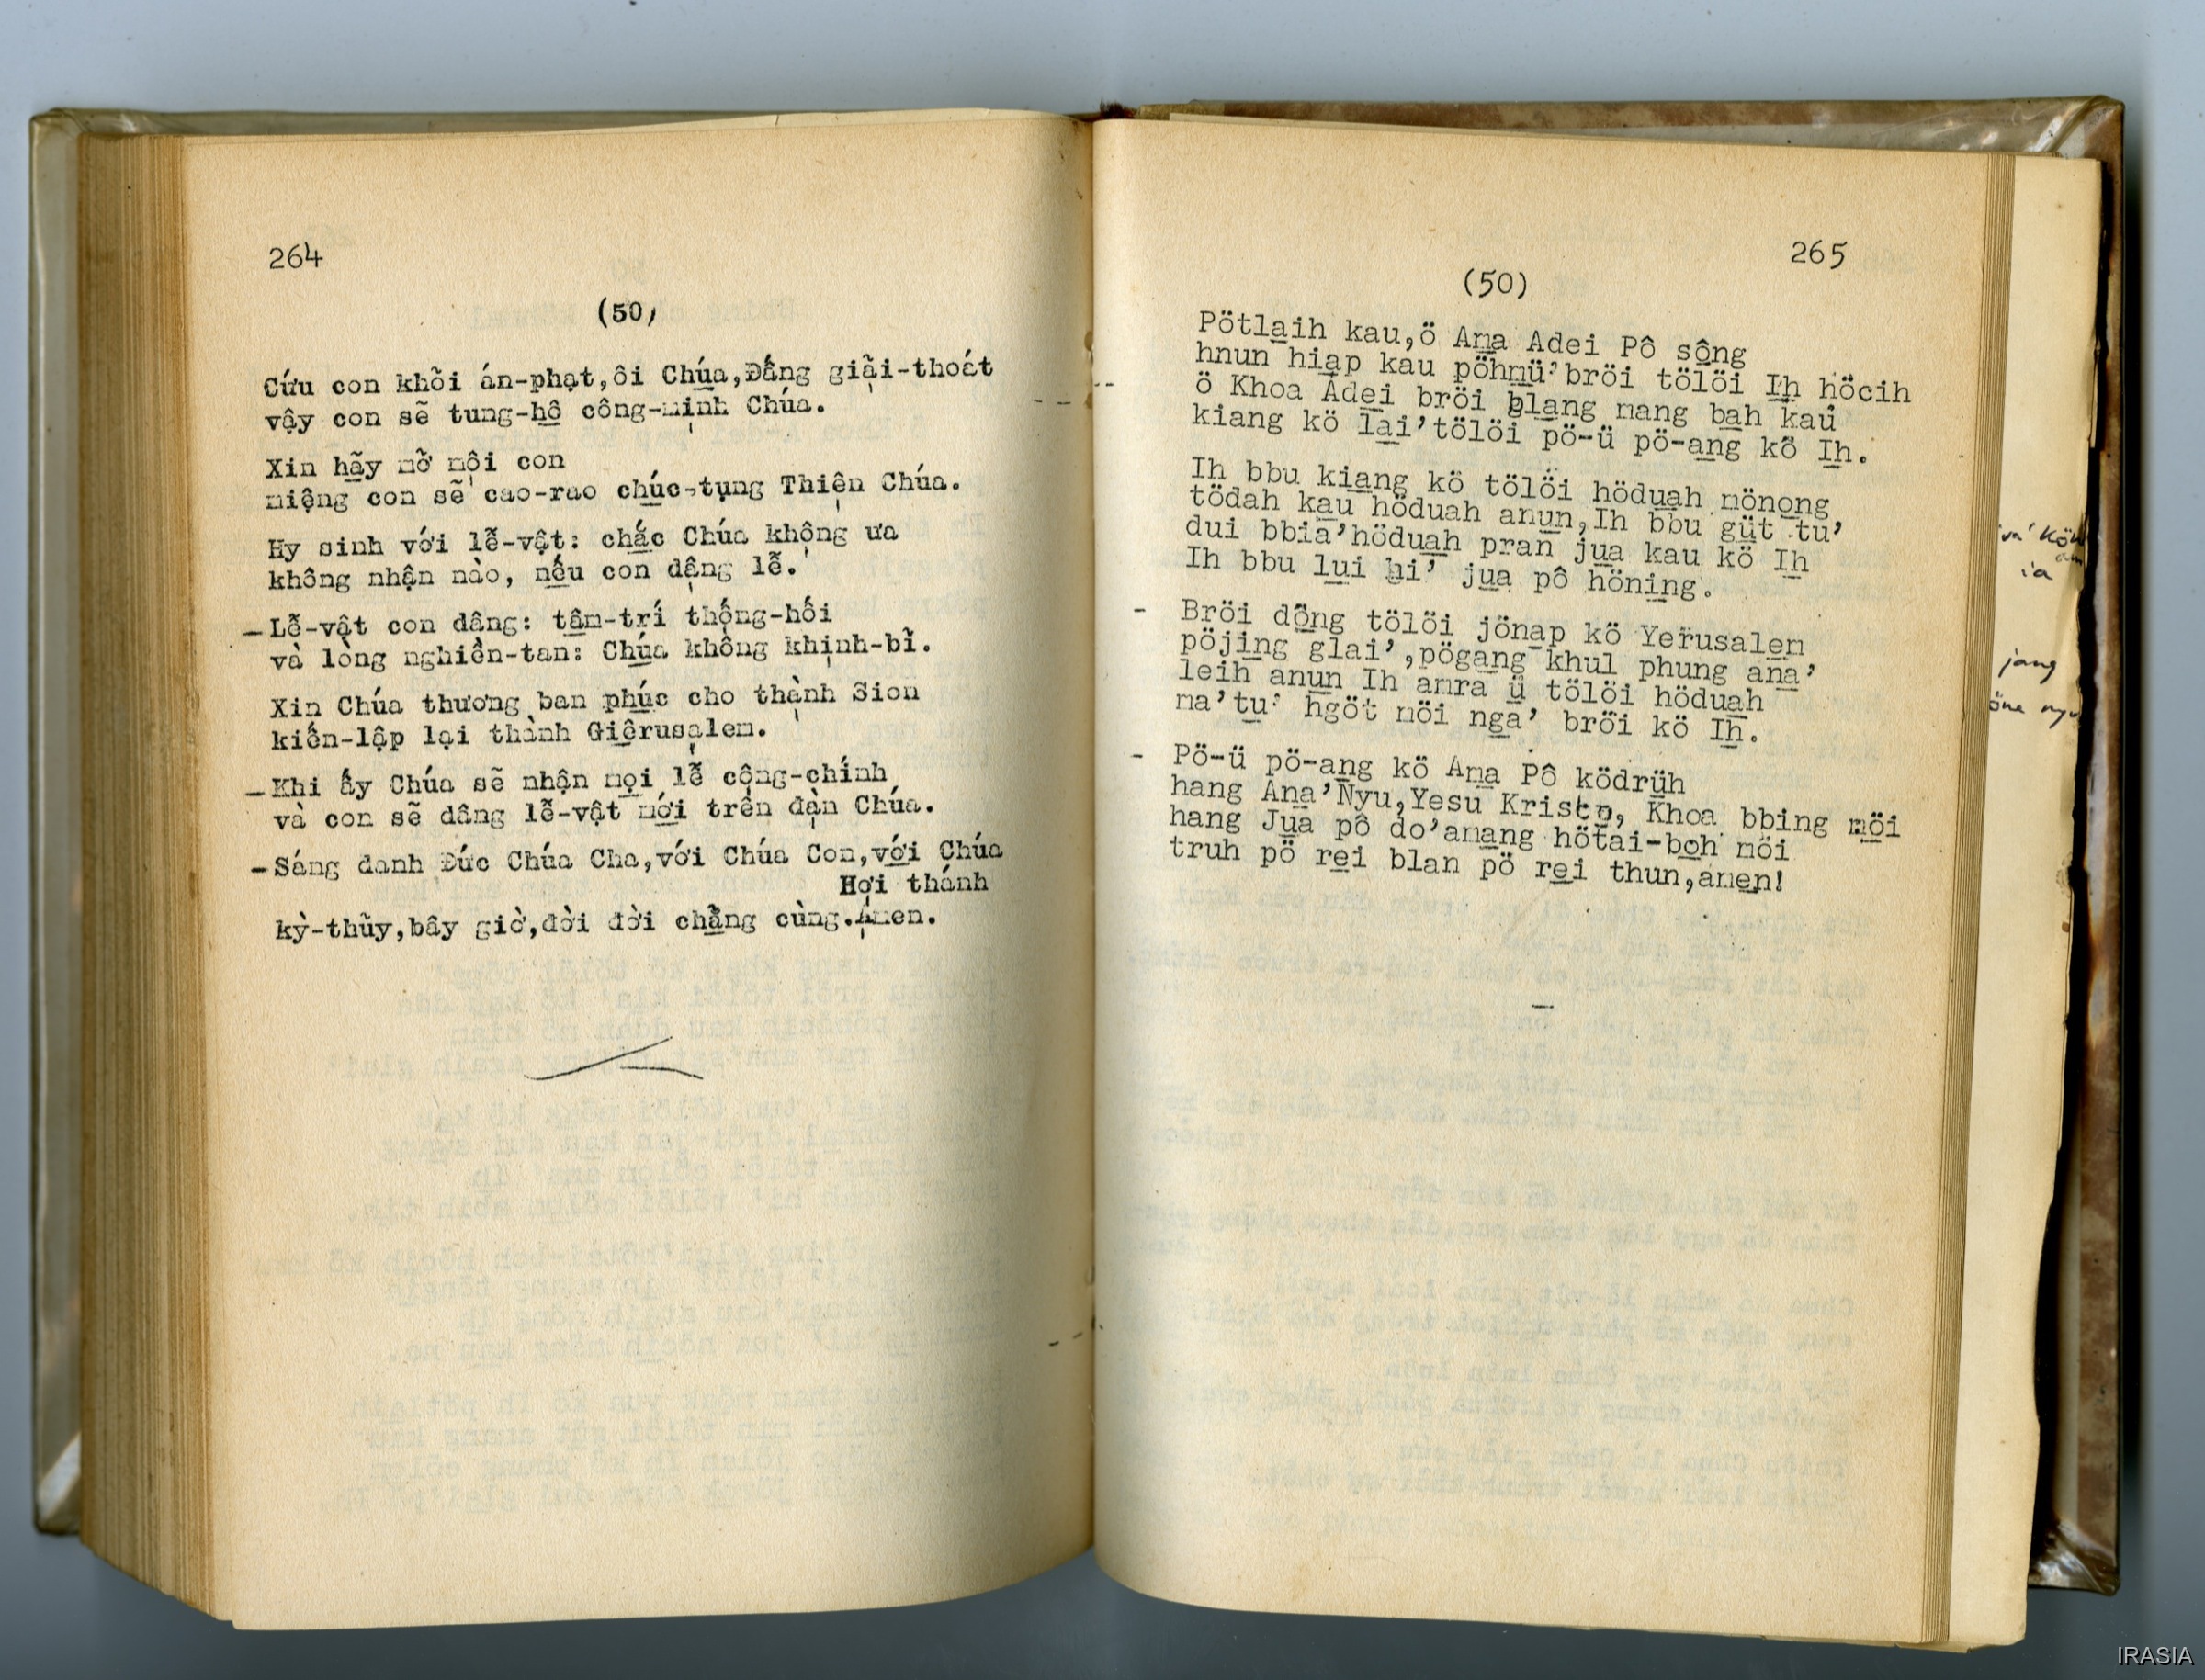 264
(50)
Cứu con khỏi án-phạt,ôi Chúa,Đấng giải-thoát
vậy con sẽ tung-hô công-minh Chúa.
Xin hãy mở môi con
miệng con sẽ cao-rao chúc-tụng Thiên Chúa.
Hy sinh với lễ-vật: chắc Chúa không ưa
không nhận nào, nếu con dâng lễ.
-Lễ-vật con dâng: tâm-trí thống-hối
và lòng nghiền-tan: Chúa không khinh-bỉ.
Xin Chúa thương ban phúc cho thành Sion
kiến-lập lại thành Giêrusalem.
-Khi ấy Chúa sẽ nhận mọi lễ công-chính
và con sẽ dâng lễ-vật mới trên đàn Chúa.
-Sáng danh Đức Chúa Cha,với Chúa Con,với Chúa
Hơi thánh
kỳ-thủy,bây giờ,đời đời chẳng cùng.Amen.
265
(50)
Pötlaih kau,ö Ama Adei Pô sông
hnun hiap kau pöhmü'bröi tölöi Ih höcih
ö Khoa Adei bröi blang mang bah kau
kiang kö lai'tölöi pö-ü pö-ang kö Ih.
Ih bbu kiang kö tölöi höduah mönong
tödah kau höduah anun,Ih bbu güt tu'
dui bbia'höduah pran jua kau kö Ih
Ih bbu lui hi' jua pô höning.
- Bröi dông tölöi jönap kö Yerusalem
pöjing glai',pögang khul phung ana'
leih anun Ih amra ü tölöi höduah
ma'tu' hgöt möi nga' bröi kö Ih.
- Pö-ü pö-ang kö Ama Pô ködrüh
hang Ana'Nyu,Yesu Kristo, Khoa bbing möi
hang Jua pô do'amang hötai-boh möi
truh pö rei blan pö rei thun,amen!
ia
jang